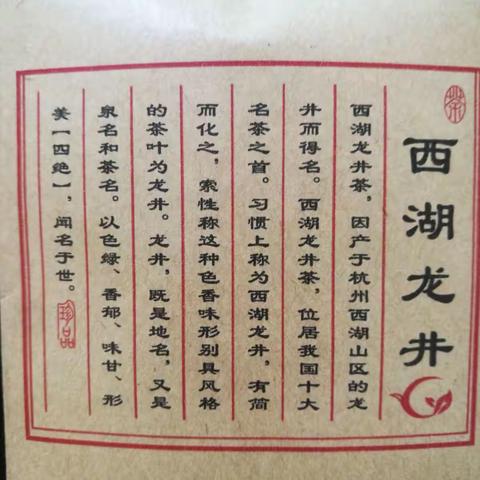 茶
西湖龙井
西湖龙井茶，因产于杭州西湖山区的龙
井而得名。西湖龙井茶，位居我国十大
名茶之首。习惯上称为西湖龙井，有简
而化之，索性称这种色香味形别具风格
的茶叶为龙井。龙井，既是地名，又是
泉名和茶名。以色绿、香郁、味甘、形
美【四绝】，闻名于世。
珍品